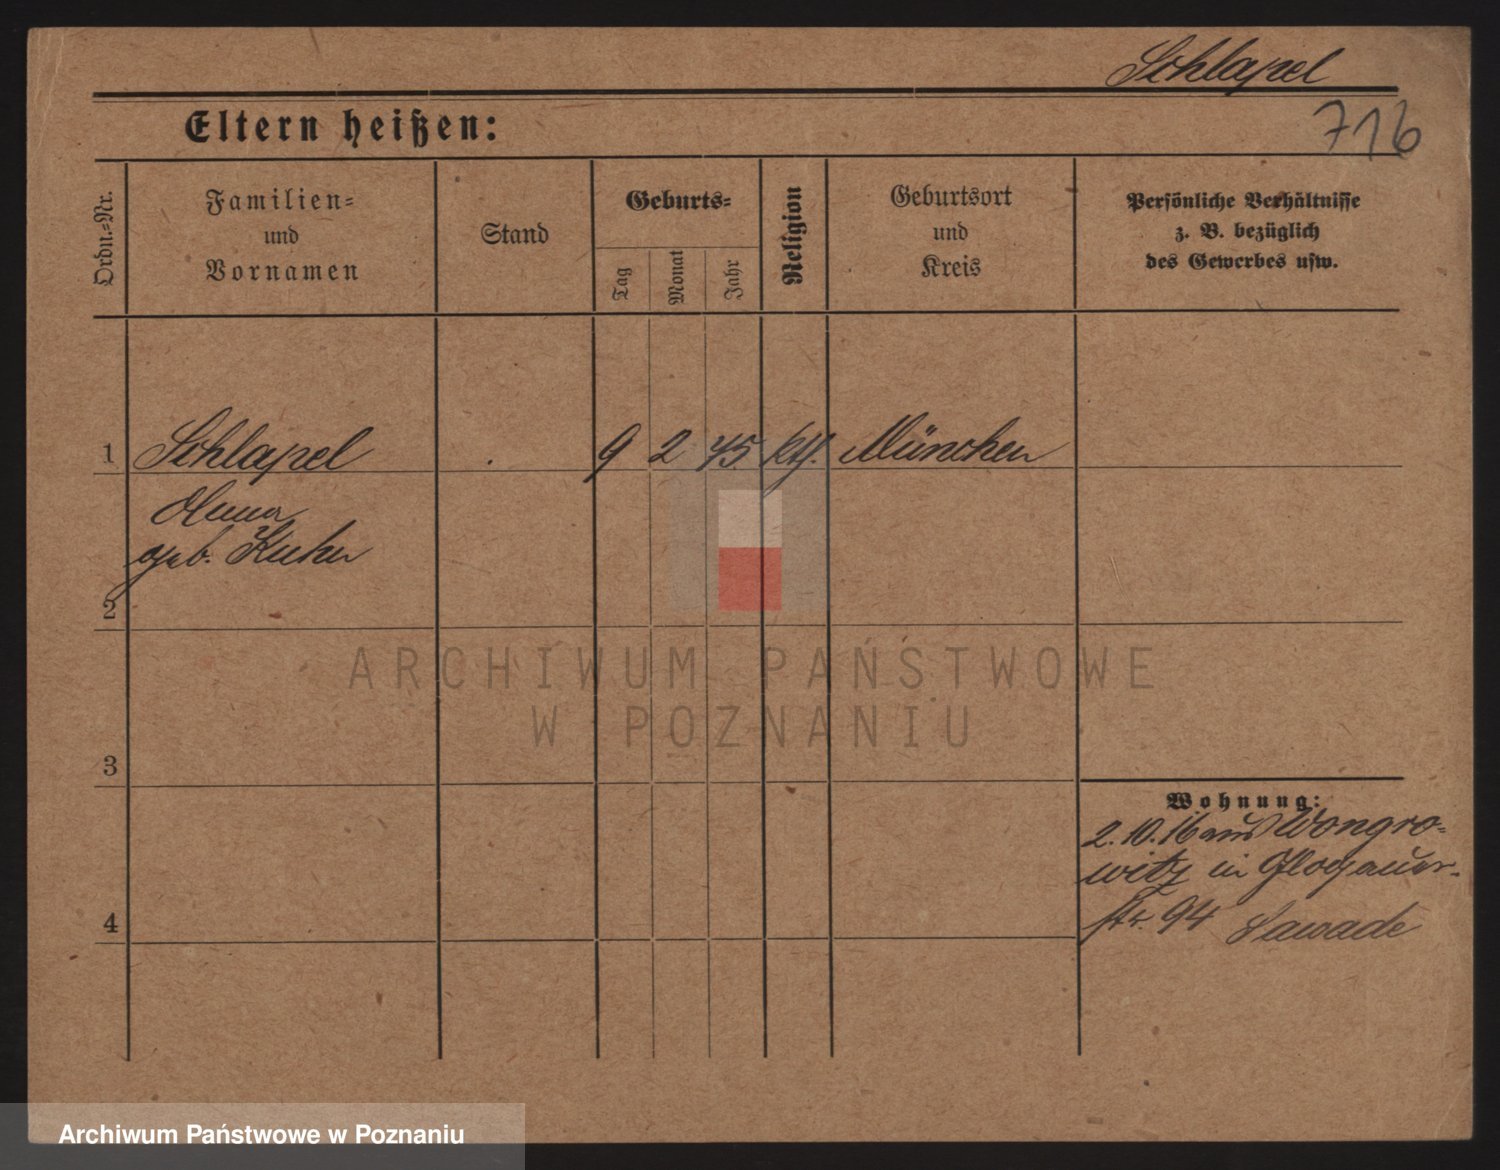 Schlapel
716
Eltern heißen:
Ordn.-Nr.
Familien-
und
Vornamen
Stand
Geburts-
Tag
Monat
Jahr
Religion
Geburtsort
und
Kreis
Persönliche Verhältnisse
z. B. bezüglich
des Gewerbes usw.
1 Schlapel 9 2 45 kth. München
Anna
geb. Kuhn
2
ARCHIWUM PAŃSTWOWE
W POZNANIU
3
Wohnung:
2.10.16 aus Wongro-
witz in Glogauer-
str. 94 Sawade
4
Archiwum Państwowe w Poznaniu